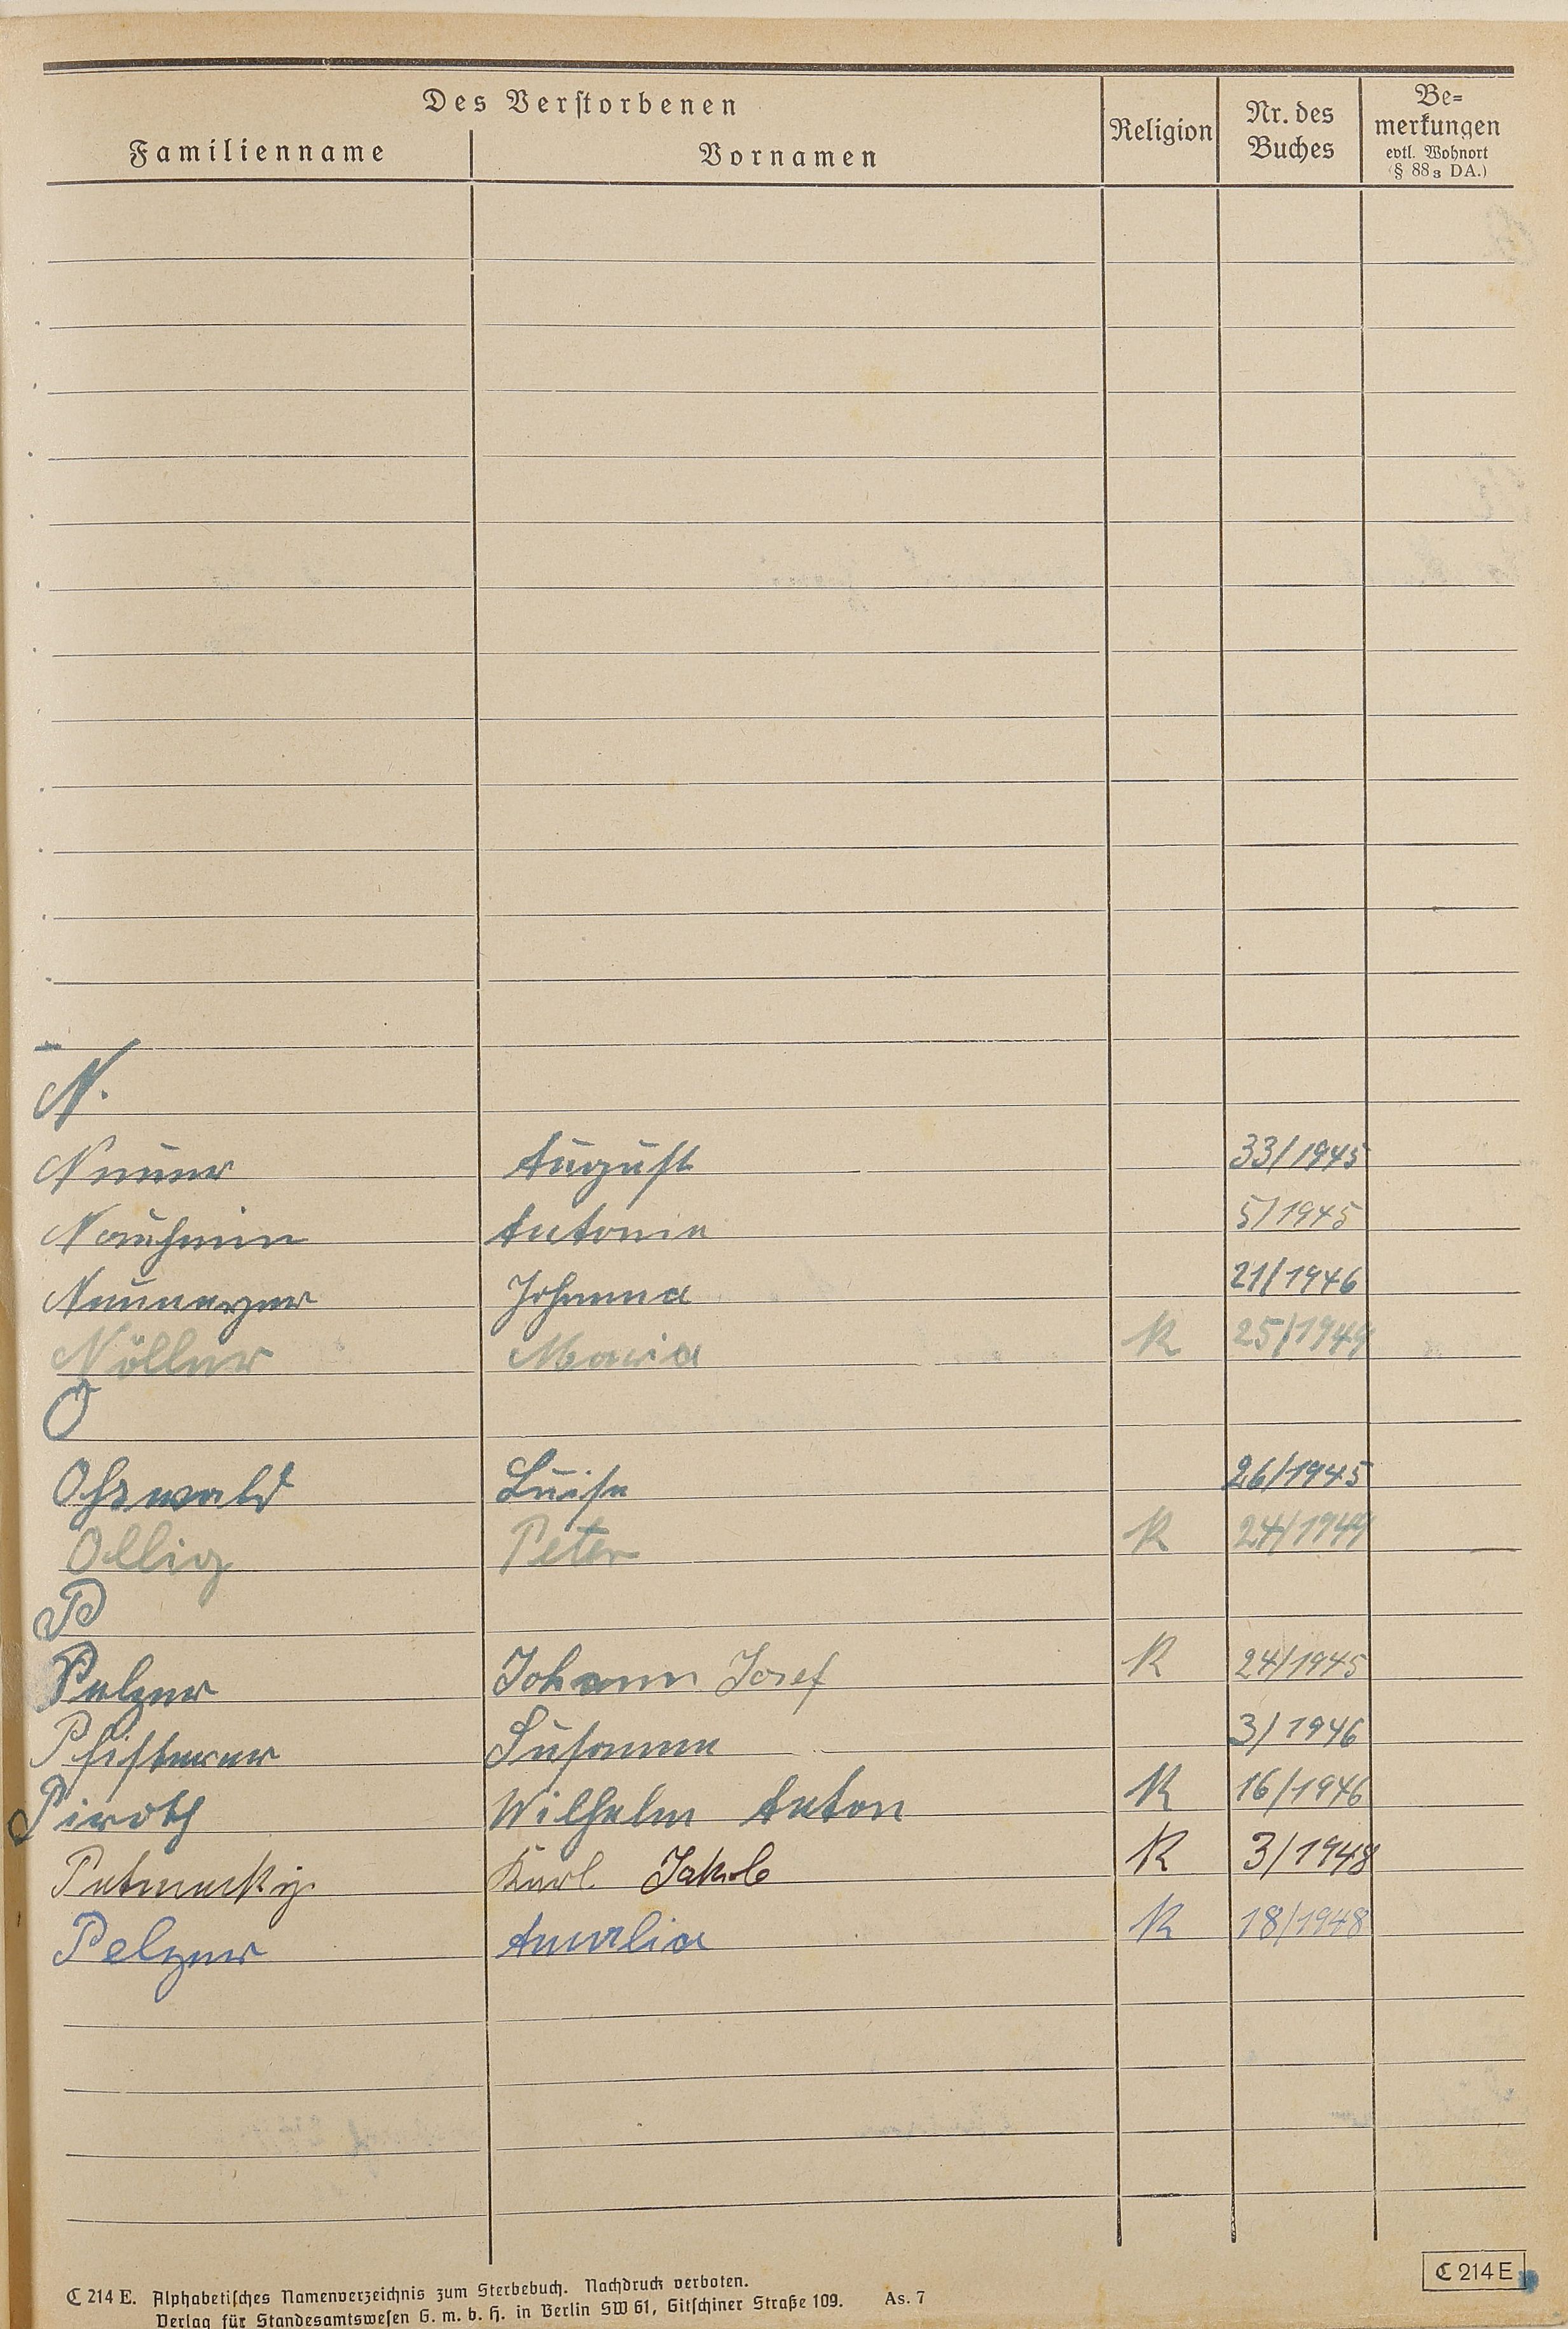 Des Verstorbenen
Familienname Vornamen Religion Nr. des Buches Be=merkungen evtl. Wohnort (§ 88 3 DA.)
N.
Neuer August 33/1945
Nauheim Antonie 5/1945
Johanna 21/1946
Nöller Maria K 25/1949
O
Ohswald Luise 26/1945
Ollig Peter K 24/1949
P
Pelzer Johann Josef K 24/1945
Pfisterer Susanne 3/1946
Piroth Wilhelm Anton K 16/1946
Karl Jakob K 3/1948
Pelzer Amalia K 18/1948
C 214 E. Alphabetisches Namenverzeichnis zum Sterbebuch. Nachdruck verboten.
Verlag für Standesamtswesen G. m. b. H. in Berlin SW 61, Gitschiner Straße 109. As. 7
C 214 E